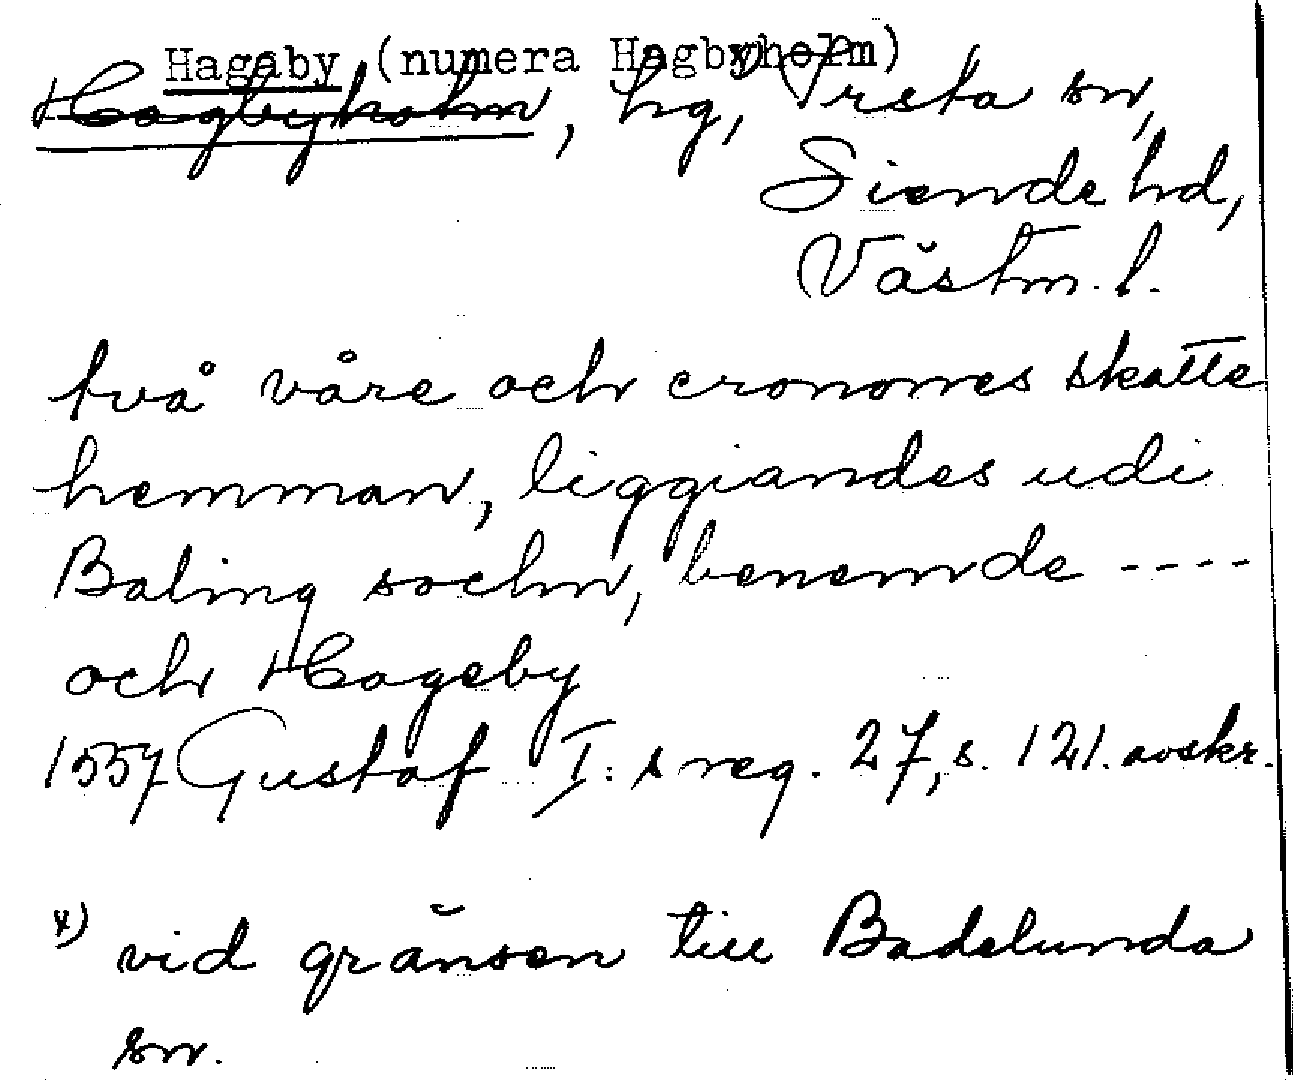 Hageby (numera Hagbyholm)
Hagbyholm, hg, x) Irsta sn,
Siende hd,
Västm. l.
två våre och cronones skatte
hemman, liggiandes udi
Baling sochn, benemde ----
och Hageby
1557 Gustaf I:s reg. 27, s. 121. avskr.
x) vid gränsen till Badelunda
sn.